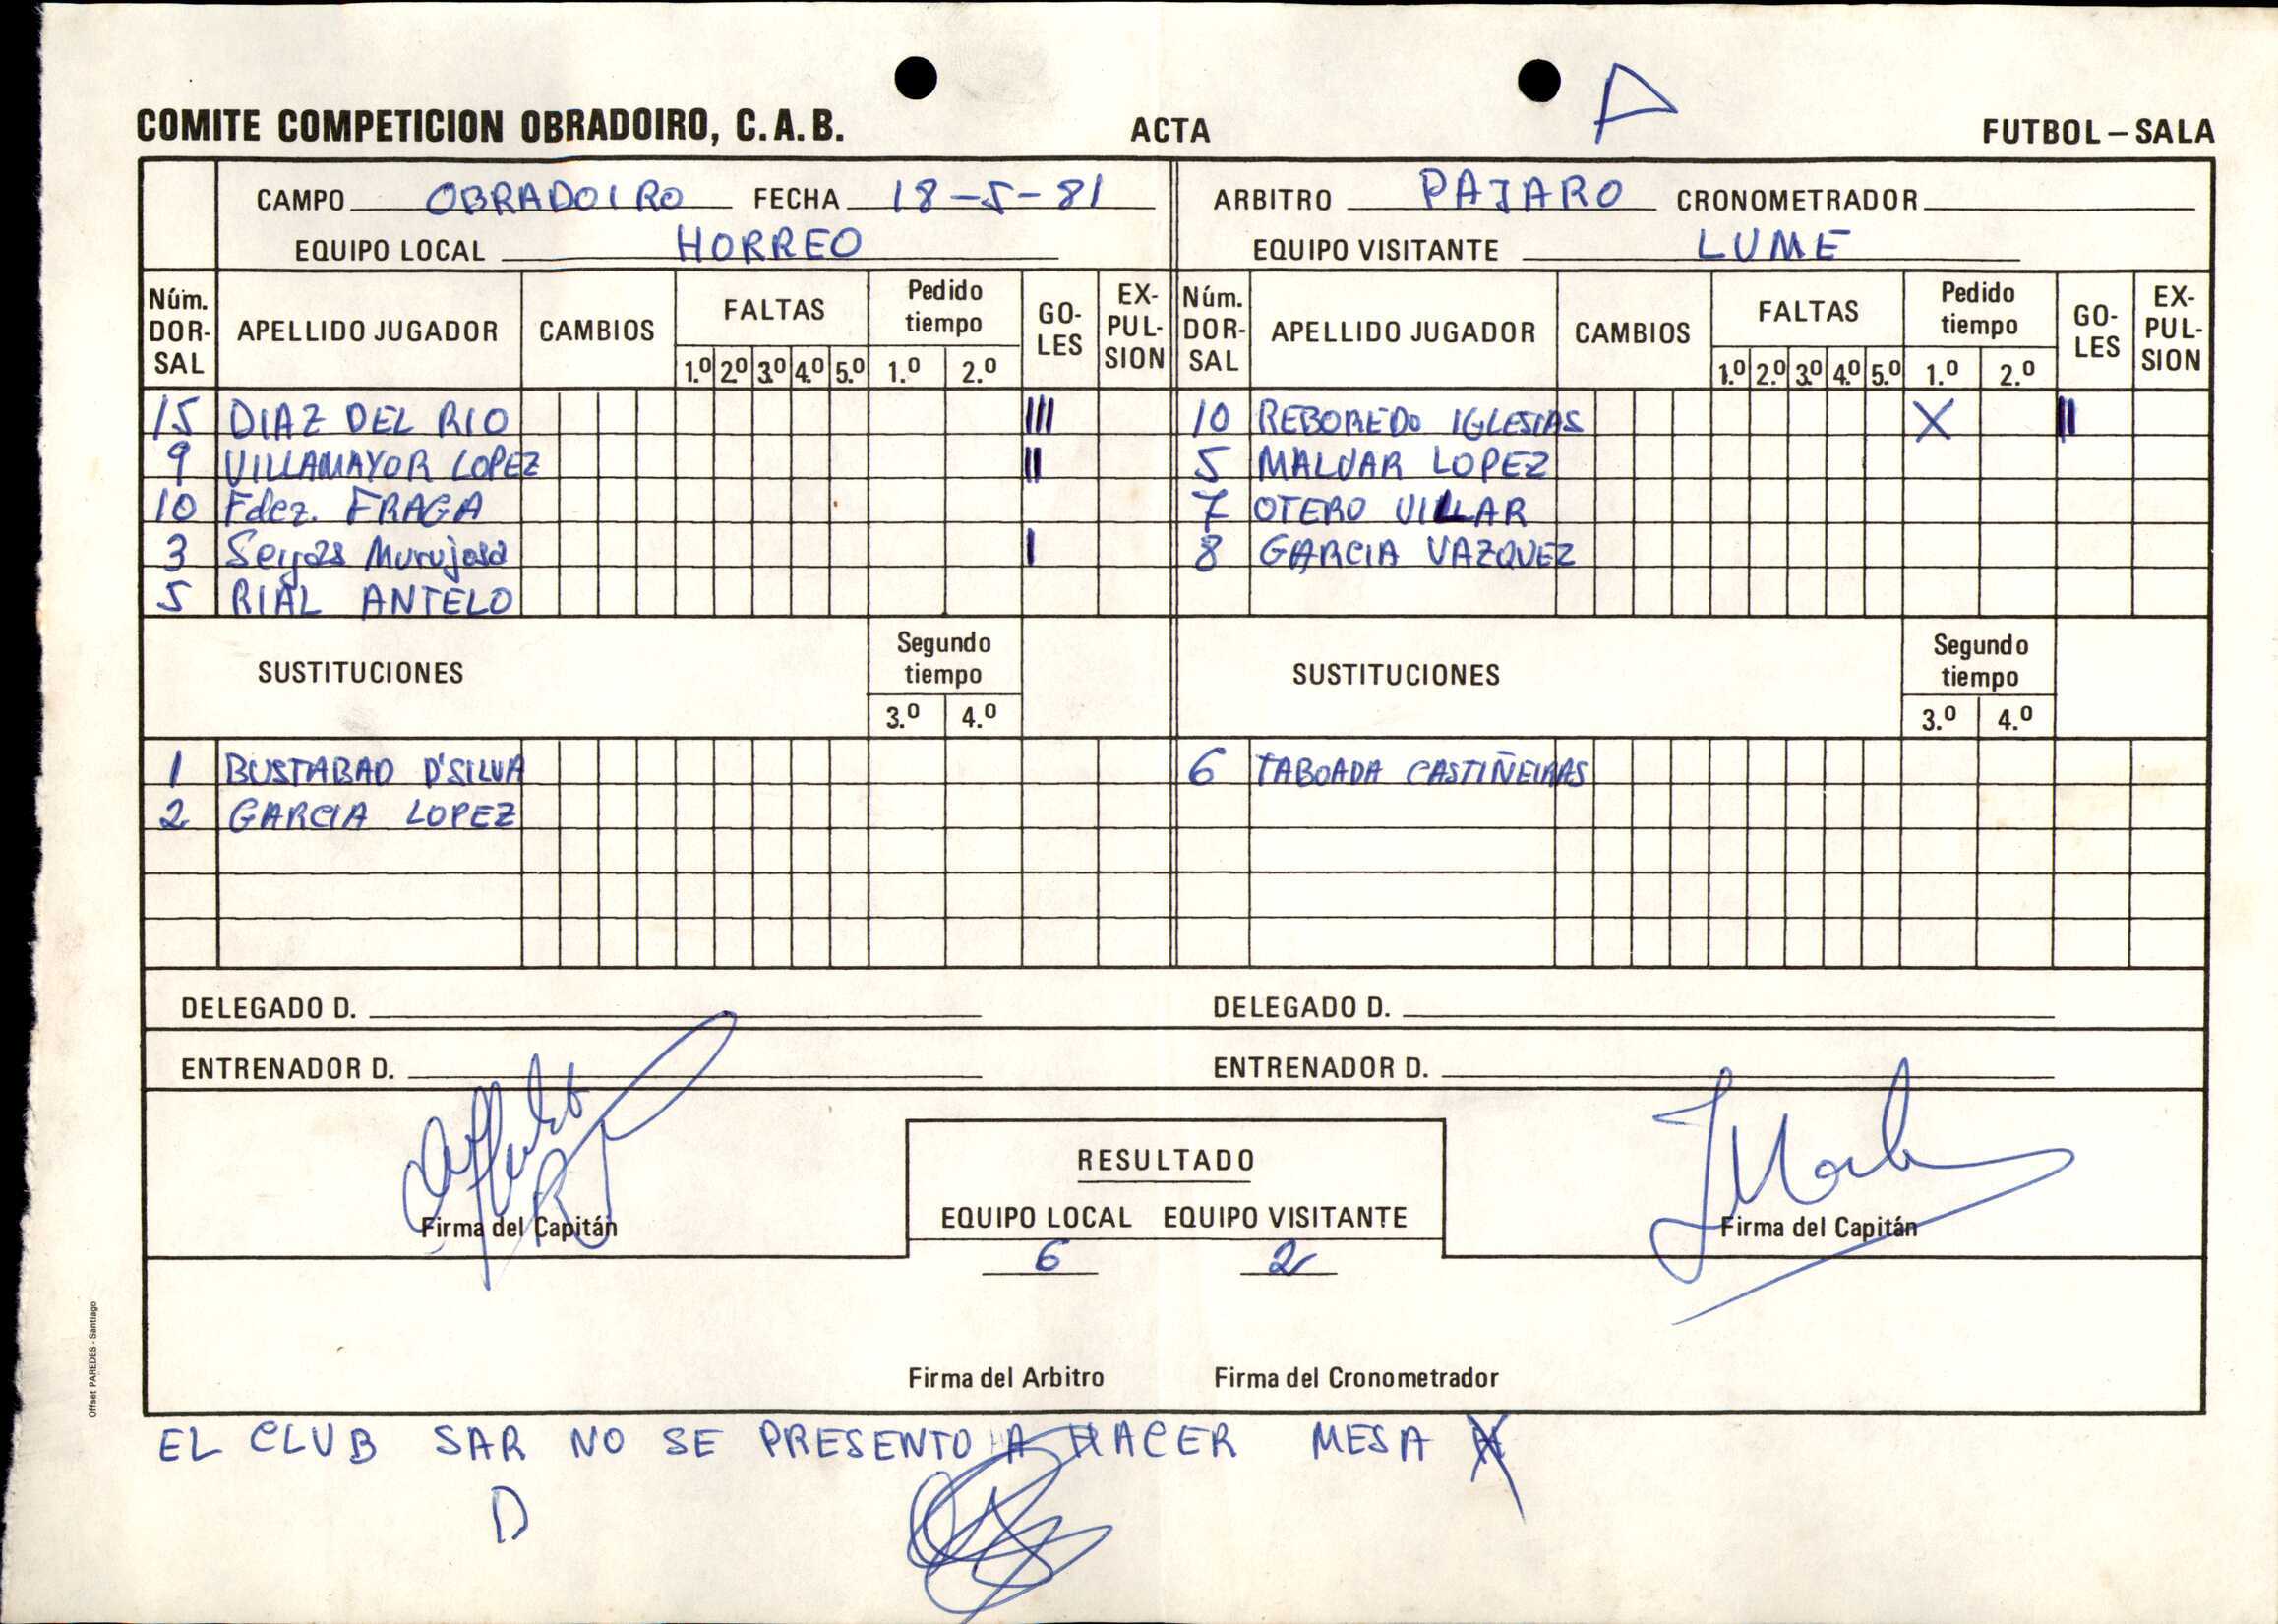 A
COMITE COMPETICION OBRADOIRO, C.A.B. ACTA FUTBOL – SALA
CAMPO OBRADOIRO FECHA 18-5-81 ARBITRO PAJARO CRONOMETRADOR
EQUIPO LOCAL HORREO EQUIPO VISITANTE LUME
Núm. DOR- SAL APELLIDO JUGADOR CAMBIOS FALTAS 1.º 2º 3.º 4.º 5.º Pedido tiempo 1.º 2.º GO- LES EX- PUL- SION Núm. DOR- SAL APELLIDO JUGADOR CAMBIOS FALTAS 1.º 2.º 3.º 4.º 5.º Pedido tiempo 1.º 2.º GO- LES EX- PUL- SION
15 DIAZ DEL RIO III 10 REBOREDO IGLESIAS X II
9 VILLAMAYOR LOPEZ II 5 MALVAR LOPEZ
10 Fdez. FRAGA 7 OTERO VILLAR
3 Seijas Murujosa I 8 GARCIA VAZQUEZ
5 RIAL ANTELO
SUSTITUCIONES Segundo tiempo 3.º 4.º SUSTITUCIONES Segundo tiempo 3.º 4.º
1 BUSTABAD D'SILVA 6 TABOADA CASTIÑEIRAS
2 GARCIA LOPEZ
DELEGADO D. DELEGADO D.
ENTRENADOR D. ENTRENADOR D.
RESULTADO
EQUIPO LOCAL EQUIPO VISITANTE
Firma del Capitán Firma del Capitán
6 2
Firma del Arbitro Firma del Cronometrador
Offset PAREDES - Santiago
EL CLUB SAR NO SE PRESENTO A HACER MESA
D